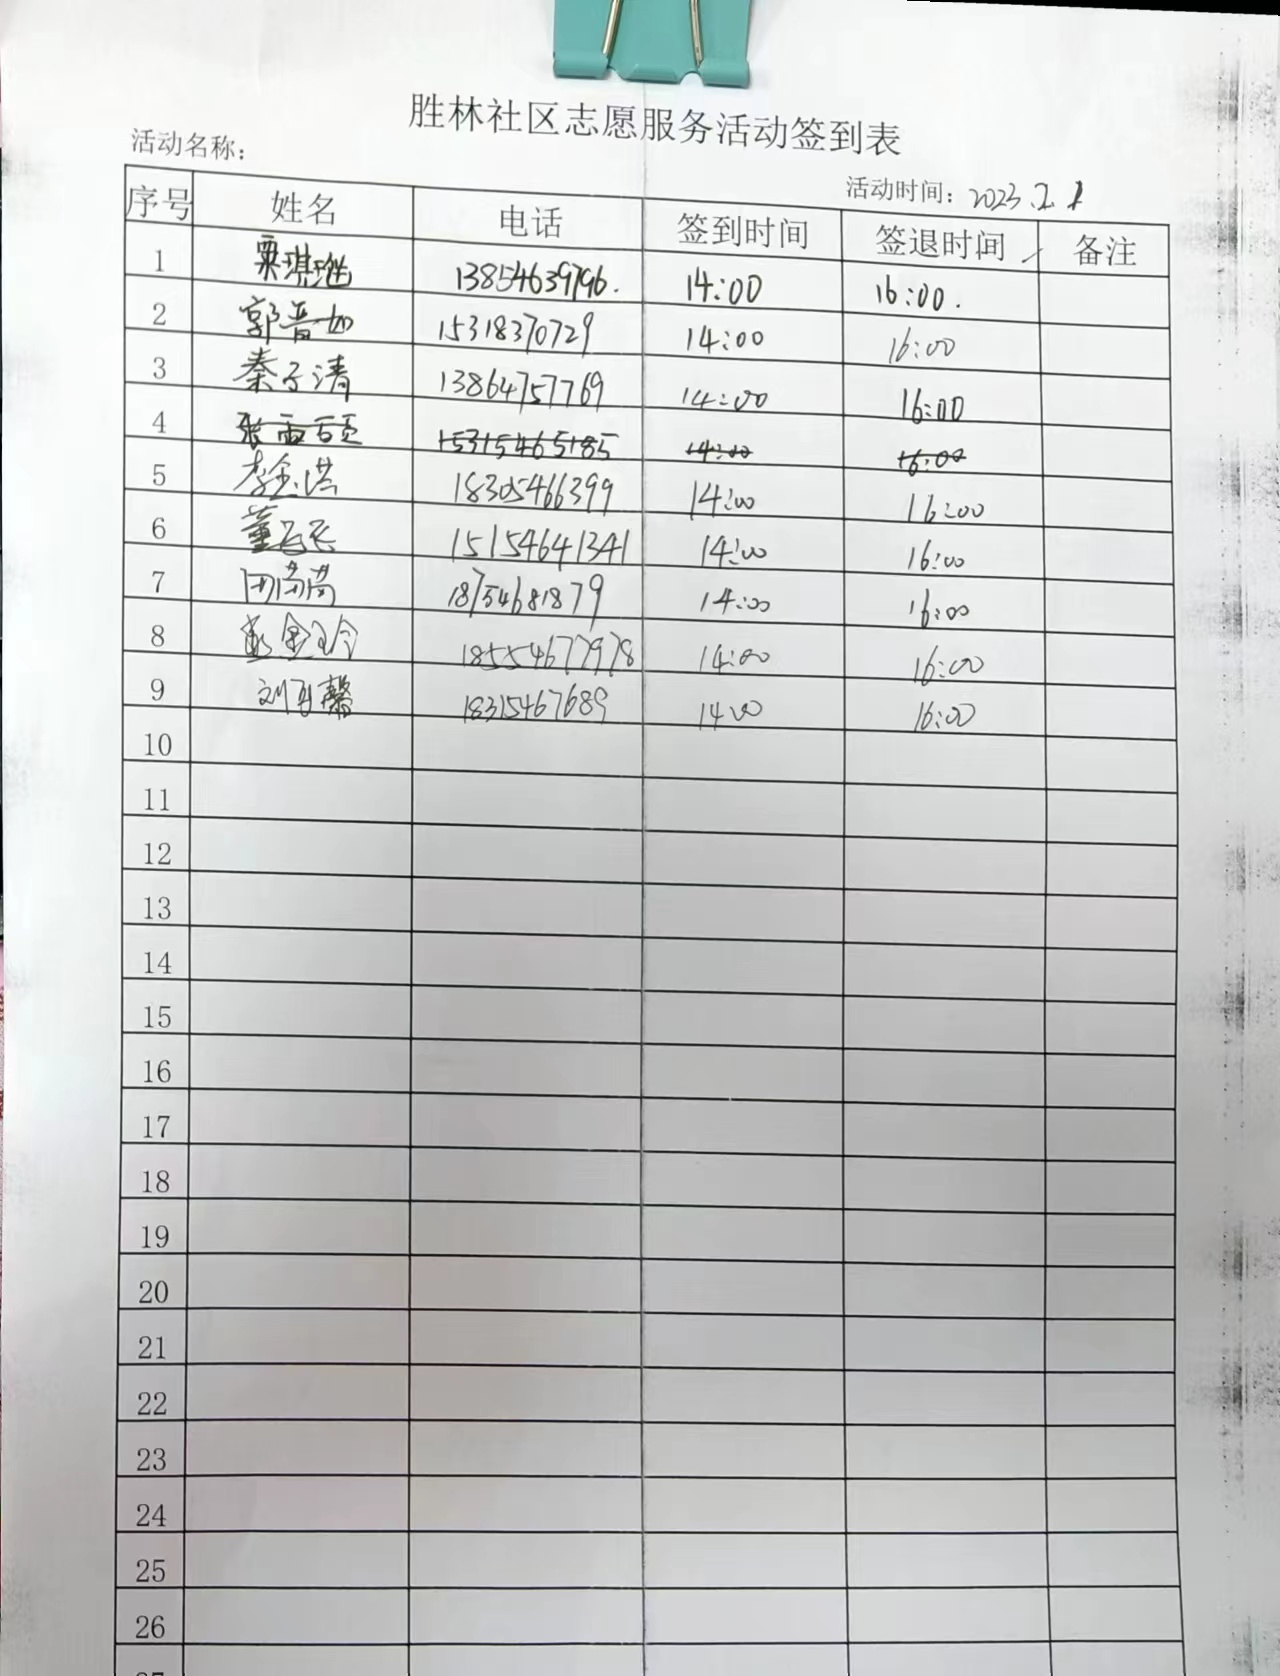 胜林社区志愿服务活动签到表
活动名称：
活动时间：2023.2.1
序号 姓名 电话 签到时间 签退时间 备注
1 13854639796. 14:00 16:00.
2 郭晋如 15318370729 14:00 16:00
3 秦子清 13864757769 14:00 16:00
4 张雨硕 15315465185 14:00 16:00
5 李金洪 18305466399 14:00 16:00
6 董 15154641341 14:00 16:00
7 田芳芳 18754681879 14:00 16:00
8 18554677978 14:00 16:00
9 刘 馨 18315467689 14:00 16:00
10
11
12
13
14
15
16
17
18
19
20
21
22
23
24
25
26